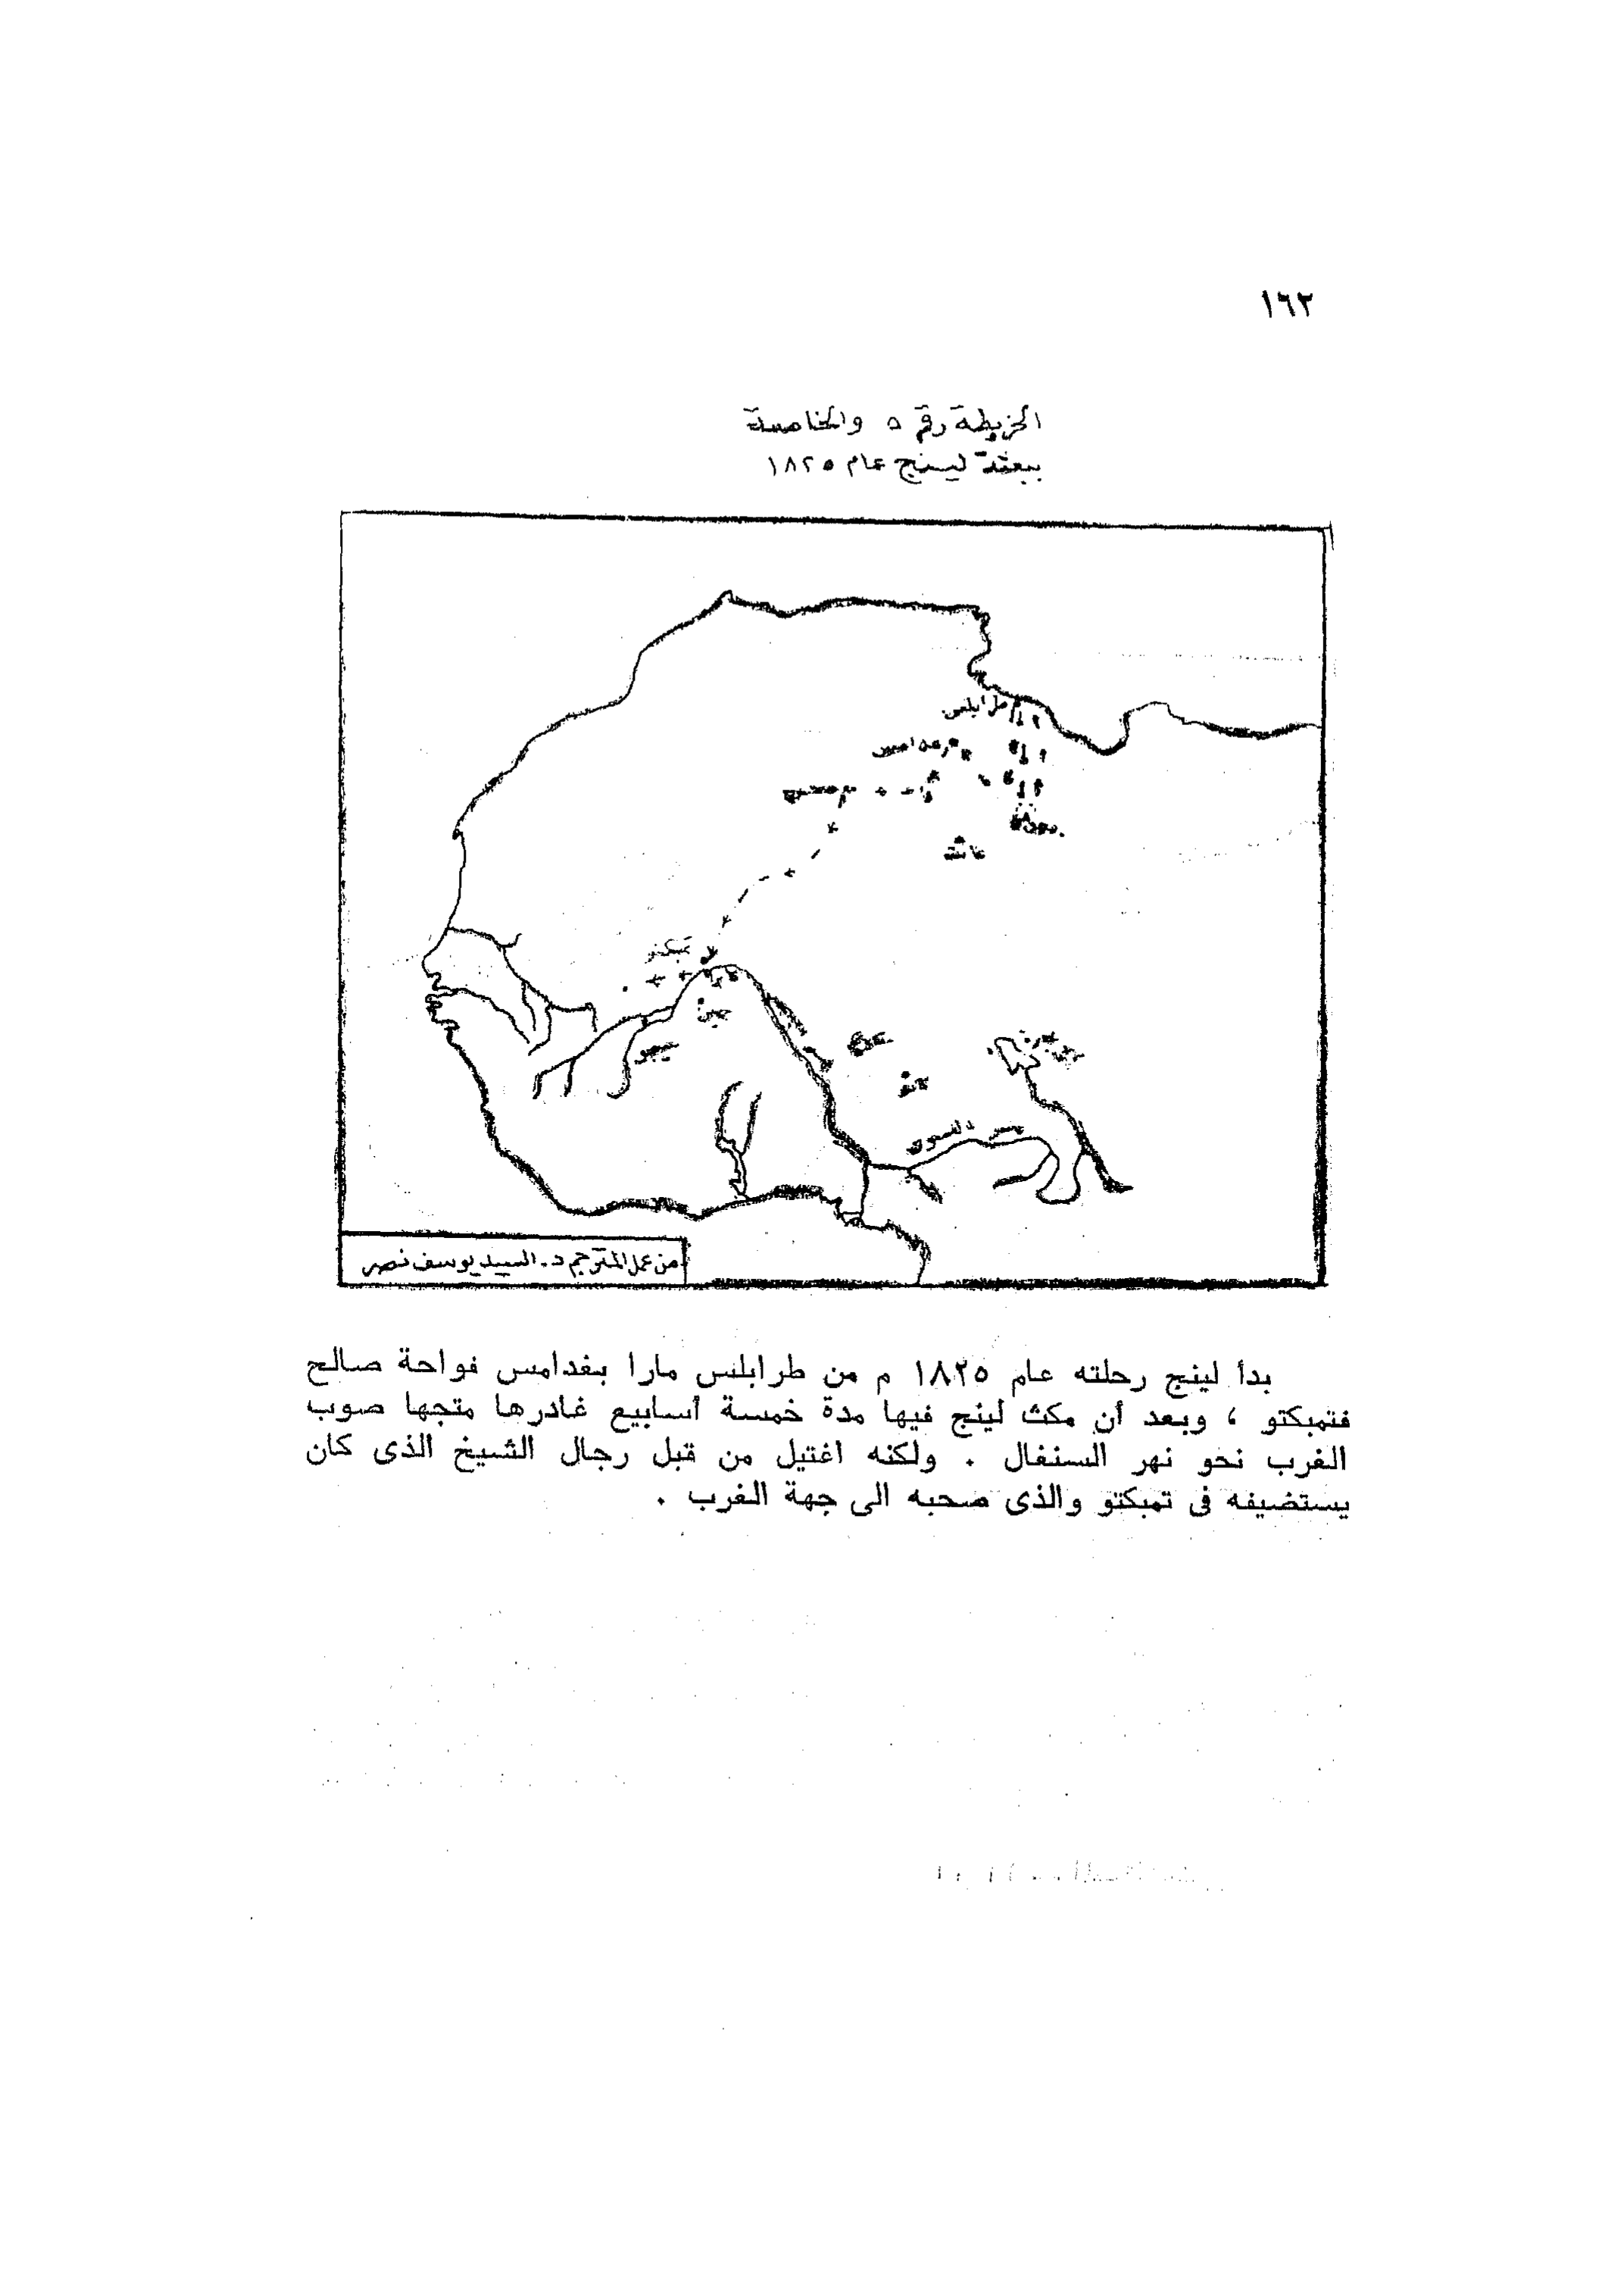 ١٦٢
الخريطة رقم ٥ والخاصة
ببعثة لينج عام ١٨٢٥
طرابلس
غدامس
تمبكتو
من عمل المترجم د. السيد يوسف نصر
بدأ لينج رحلته عام ١٨٢٥ م من طرابلس مارا بغدامس فواحة صالح
فتمبكتو ، وبعد أن مكث لينج فيها مدة خمسة أسابيع غادرها متجها صوب
الغرب نحو نهر السنغال . ولكنه اغتيل من قبل رجال الشيخ الذى كان
يستضيفه فى تمبكتو والذى صحبه الى جهة الغرب .